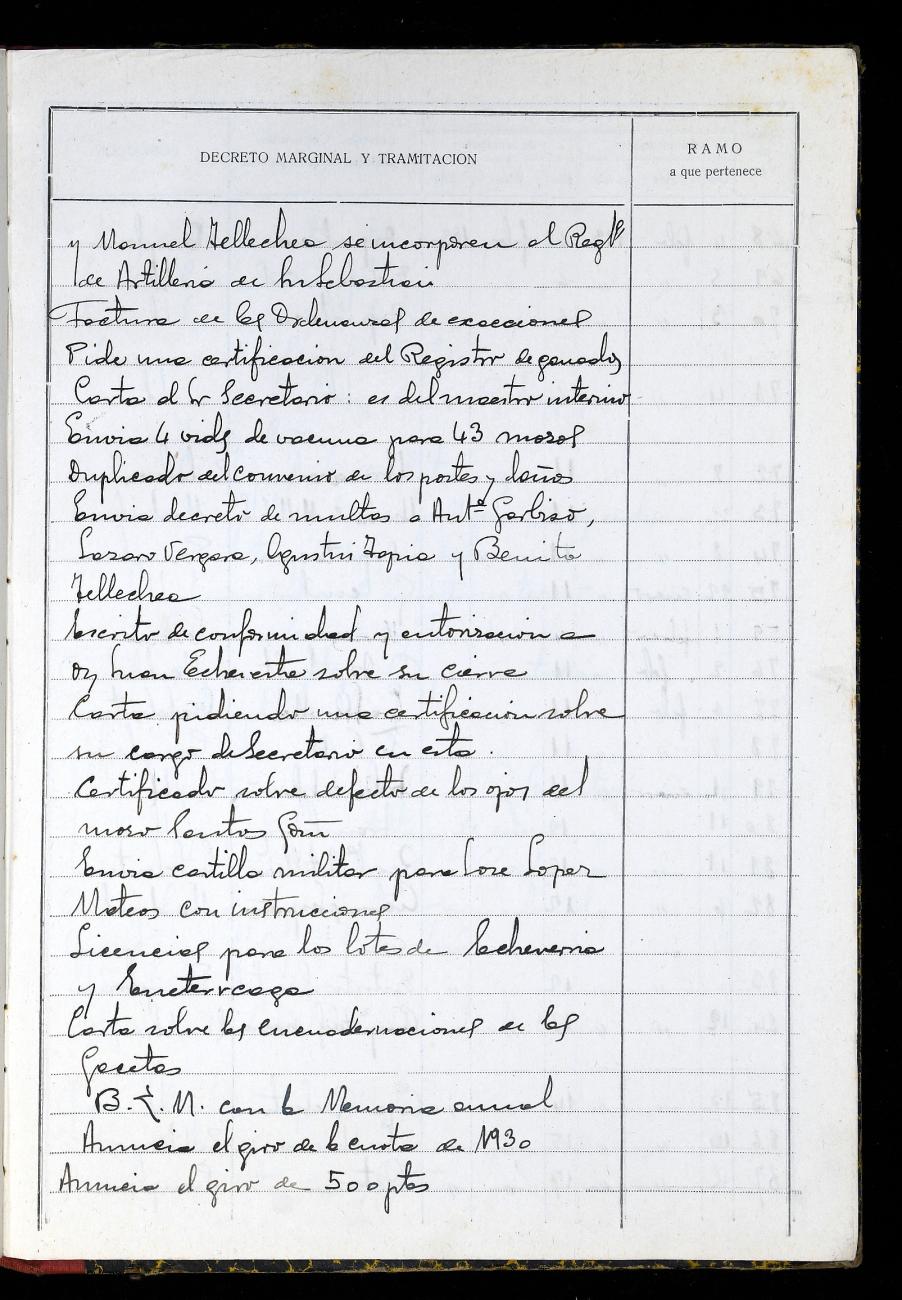 DECRETO MARGINAL Y TRAMITACION
RAMO
a que pertenece
y Manuel Tellechea se incorporen al Regto
de Artilleria de San Sebastian
Factura de las Ordenanzas de exacciones
Pide una certificacion del Registro de ganados
Carta al Sr Secretario: es del maestro interino
Envia 4 vids de vacuna para 43 mozos
Duplicado del convenio de los postes y daños
Envia decreto de multas a Antº Garbiso,
Lazaro Vergara, Agustin Tapia y Benito
Tellechea
Escrito de conformidad y autorizacion a
Dn Juan Echeveste sobre su cierre
Carta pidiendo una certificacion sobre
su cargo de Secretario en esta.
Certificado sobre defecto de los ojos del
mozo Santos
Envia cartilla militar para Jose Lopez
Mateos con instruciones
Licencias para los lotes de Echeverria
y
Carta sobre las encuadernaciones de las
Gacetas
B. L. M. con la Memoria anual
Anuncia el giro de la cuota de 1930
Anuncia el giro de 500 ptas